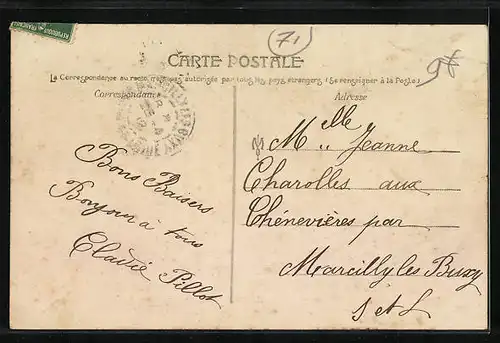 REPUBLIQUE FRANÇAISE
71
9f
CARTE POSTALE
La Correspondance au recto n'est pas autorisée par tous les pays étrangers (Se renseigner à la Poste)
Correspondance
Adresse
Bons Baisers
Bonjour à tous
Claudie Pillot
Mlle Jeanne
Charolles aux
Chénevières par
Marcilly les Buxy
S et L